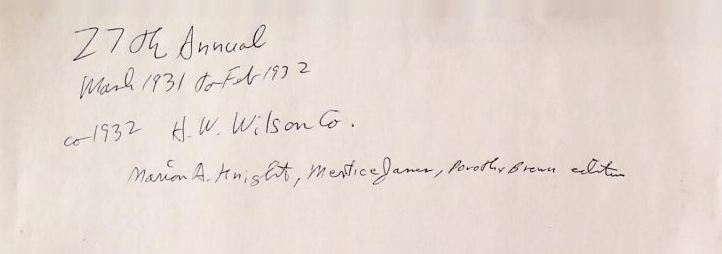 27th Annual
March 1931 to Feb 1932
co 1932 H. W. Wilson Co.
Marion A. Knight, Mertice James, Dorothy Brown editors